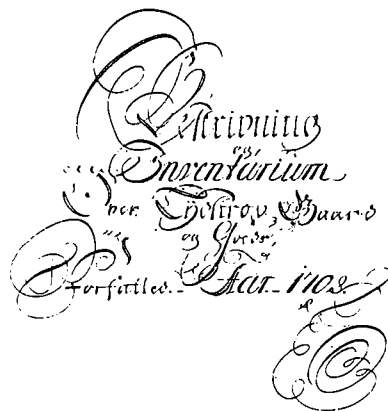 Beskrivning
og
Inventarium
Over Tybierg Gaard
og Gods,
Forfatted Aar 1708